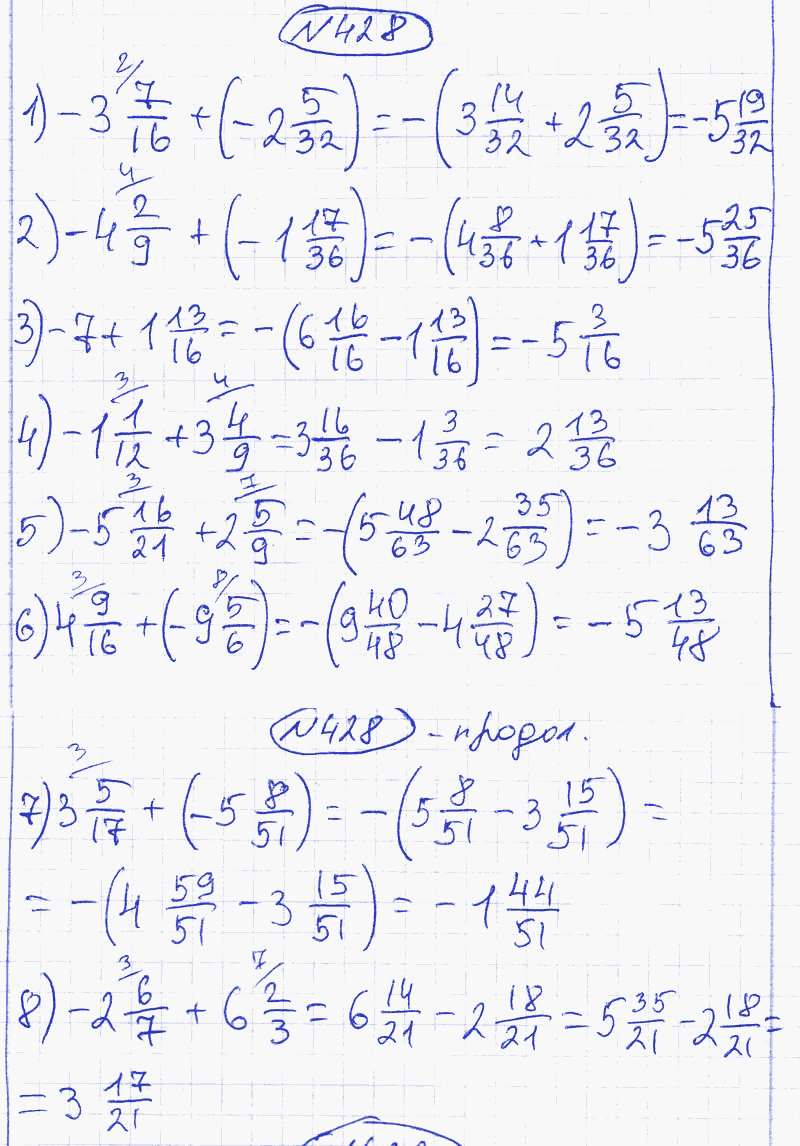 №428
1) -3 2/ 7/16 + (-2 5/32) = -(3 14/32 + 2 5/32) = -5 19/32
2) -4 4/ 2/9 + (-1 17/36) = -(4 8/36 + 1 17/36) = -5 25/36
3) -7 + 1 13/16 = -(6 16/16 - 1 13/16) = -5 3/16
4) -1 3/ 1/12 + 3 4/ 4/9 = 3 16/36 - 1 3/36 = 2 13/36
5) -5 3/ 16/21 + 2 7/ 5/9 = -(5 48/63 - 2 35/63) = -3 13/63
6) 4 3/ 9/16 + (-9 8/ 5/6) = -(9 40/48 - 4 27/48) = -5 13/48
№428 - продол.
7) 3 3/ 5/17 + (-5 8/51) = -(5 8/51 - 3 15/51) =
= -(4 59/51 - 3 15/51) = -1 44/51
8) -2 3/ 6/7 + 6 7/ 2/3 = 6 14/21 - 2 18/21 = 5 35/21 - 2 18/21 =
= 3 17/21